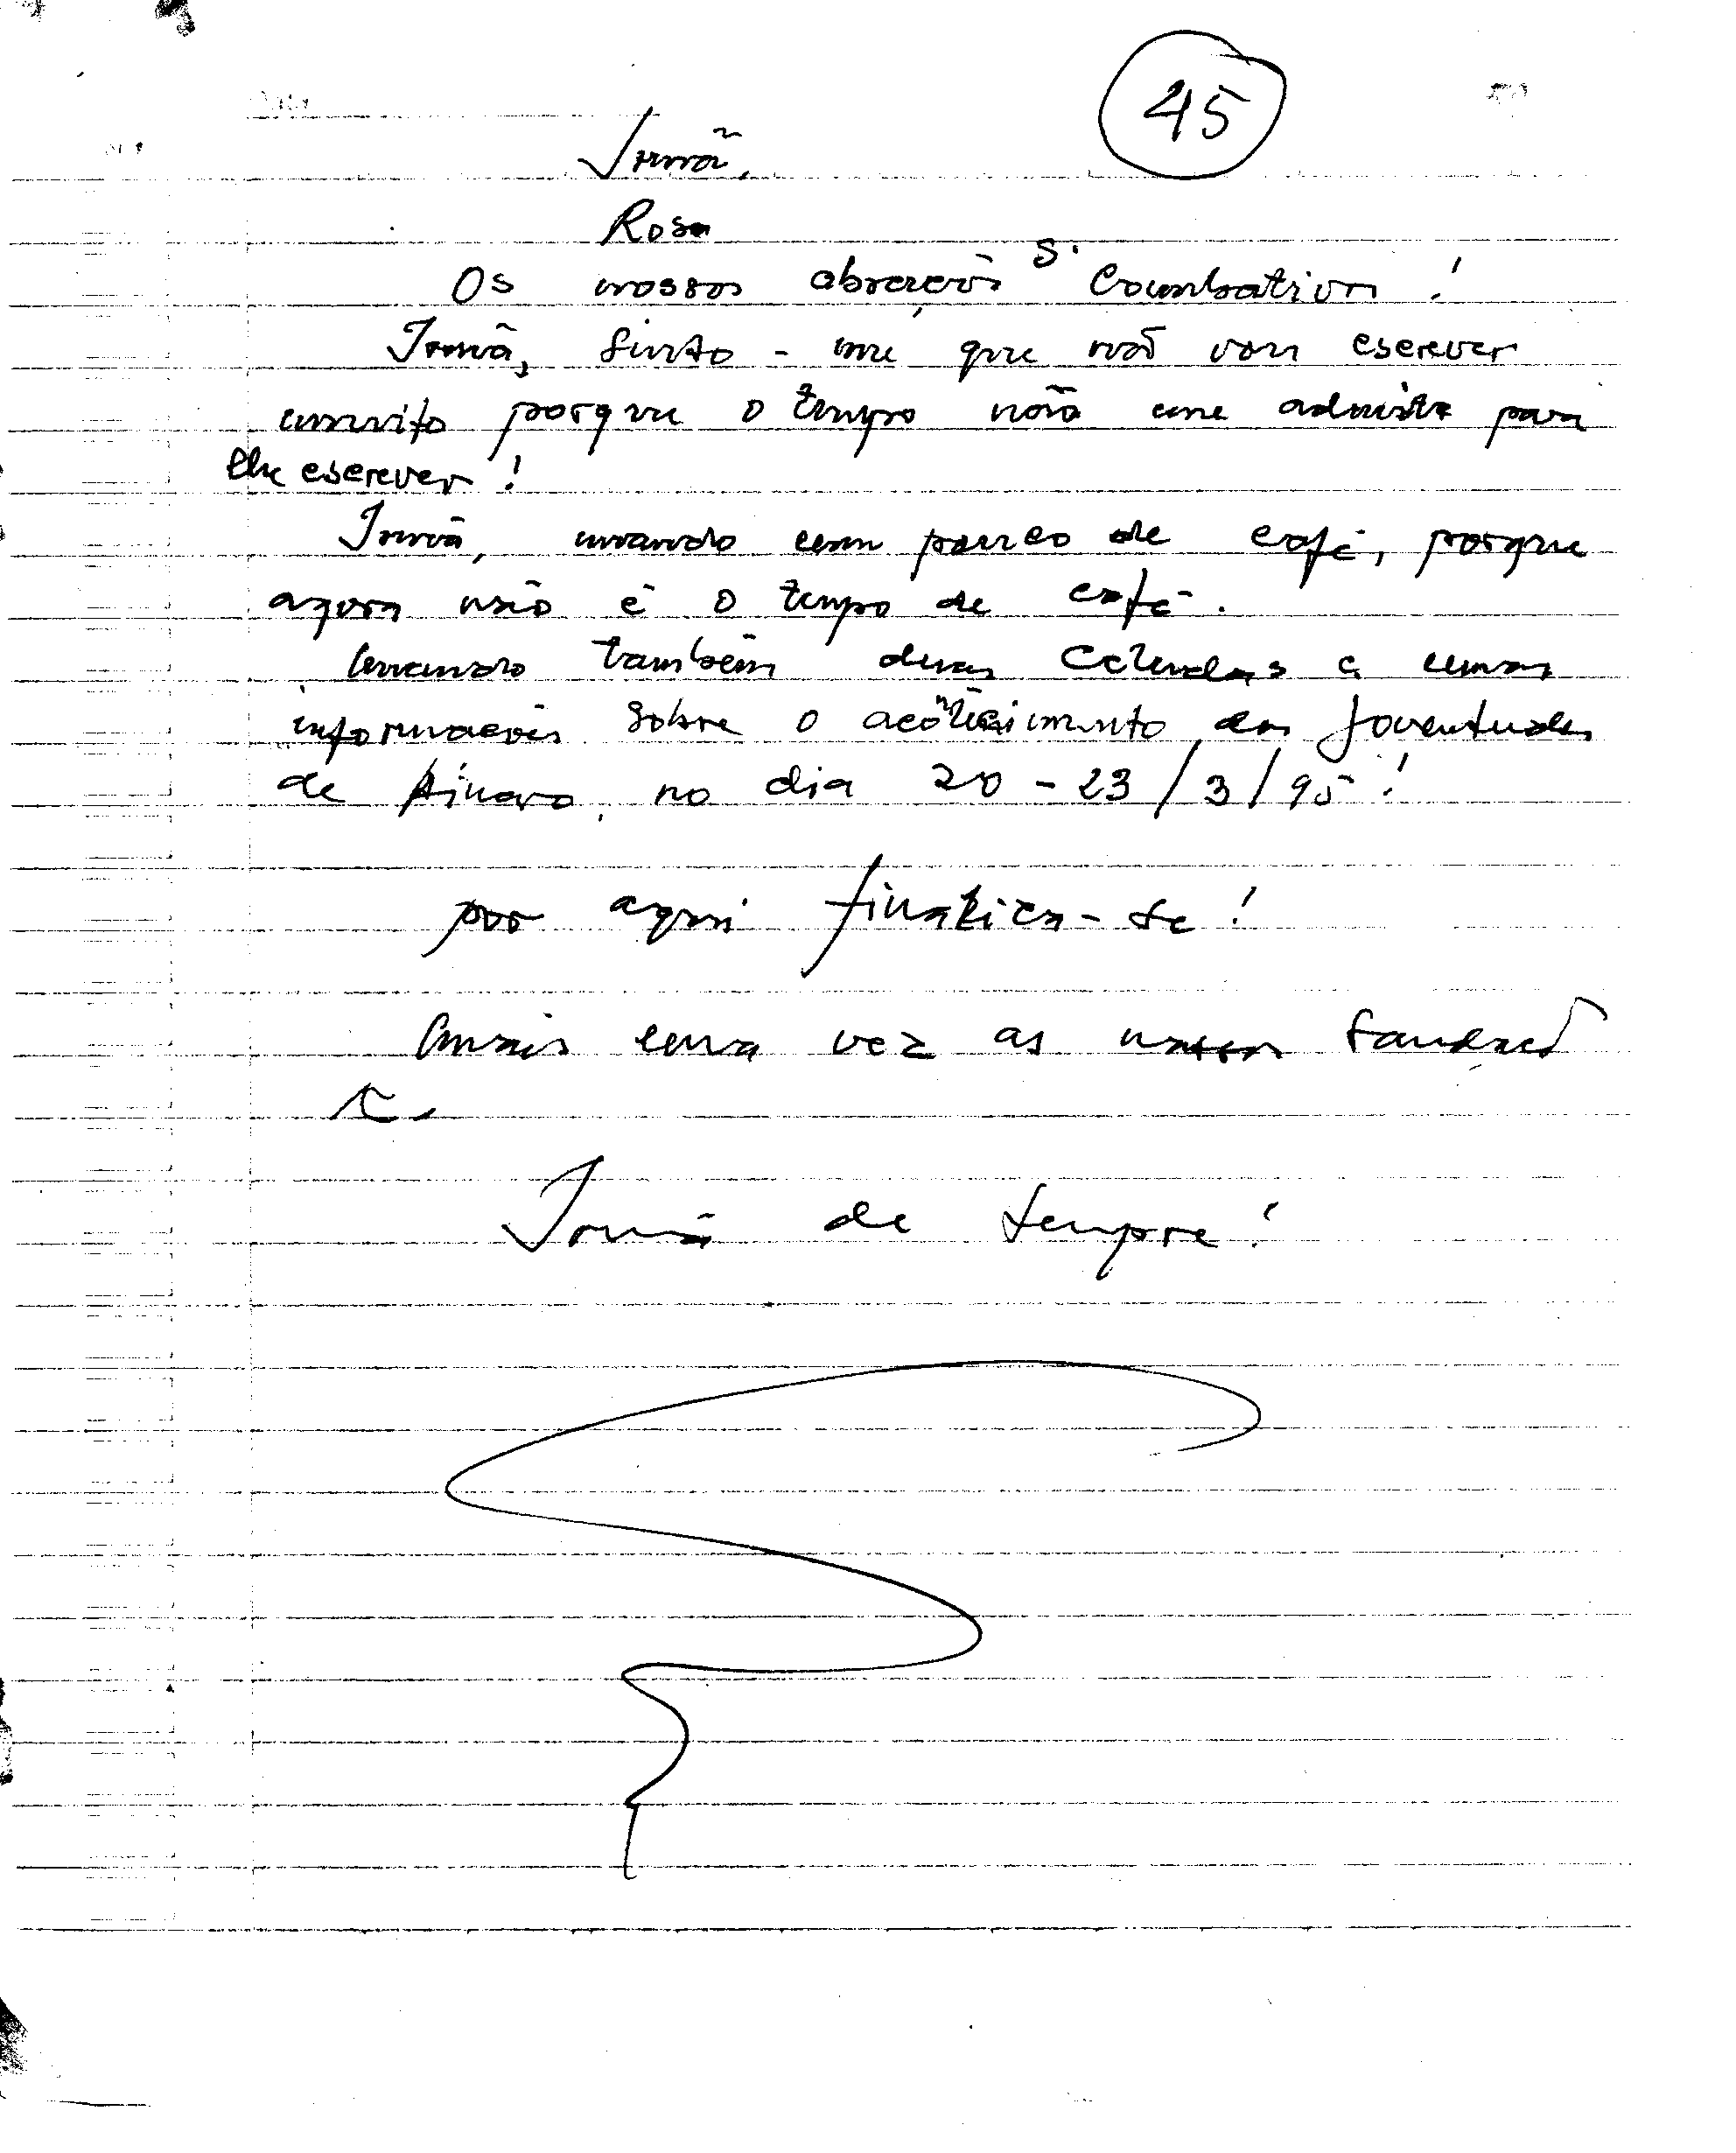 45
Irmã,
Rosa
Os nossos abraços S. Combativos!
Irmã, sinto-me que não vou escrever
muito porque o tempo não me admite para
lhe escrever!
Irmã, mando um pouco de café, porque
agora não é o tempo de café.
Mando também duas e umas
informações sobre o acôntecimento das Joventudes
de Ainaro, no dia 20-23/3/95!
por aqui finaliza-se!
Mais uma vez as nossas Saudaçõ
es.
Irmã de sempre!